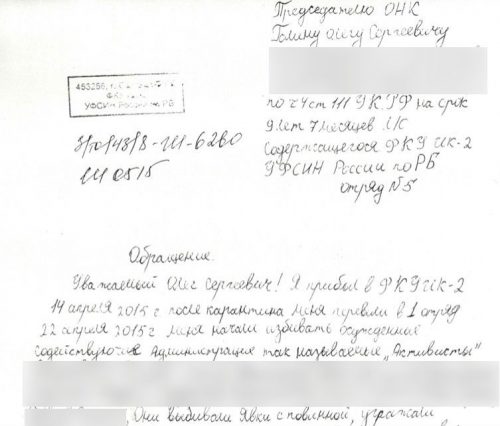 Председателю ОНК
Галину Олегу Сергеевичу
по ч 4 ст 111 УК РФ на срок
9 лет 7 месяцев ИК
Содержащегося ФКУ ИК-2
УФСИН России по РБ
отряд №5
453256,
УФСИН России по РБ
Обращение.
Уважаемый Олег Сергеевич! Я прибыл в ФКУ ИК-2
14 апреля 2015 г. после карантина меня перевели в 1 отряд
22 апреля 2015 г меня начали избивать осужденные
содействующие администрация так называемые „Активисты"
, Они выбивали явки с повинной, угрожали